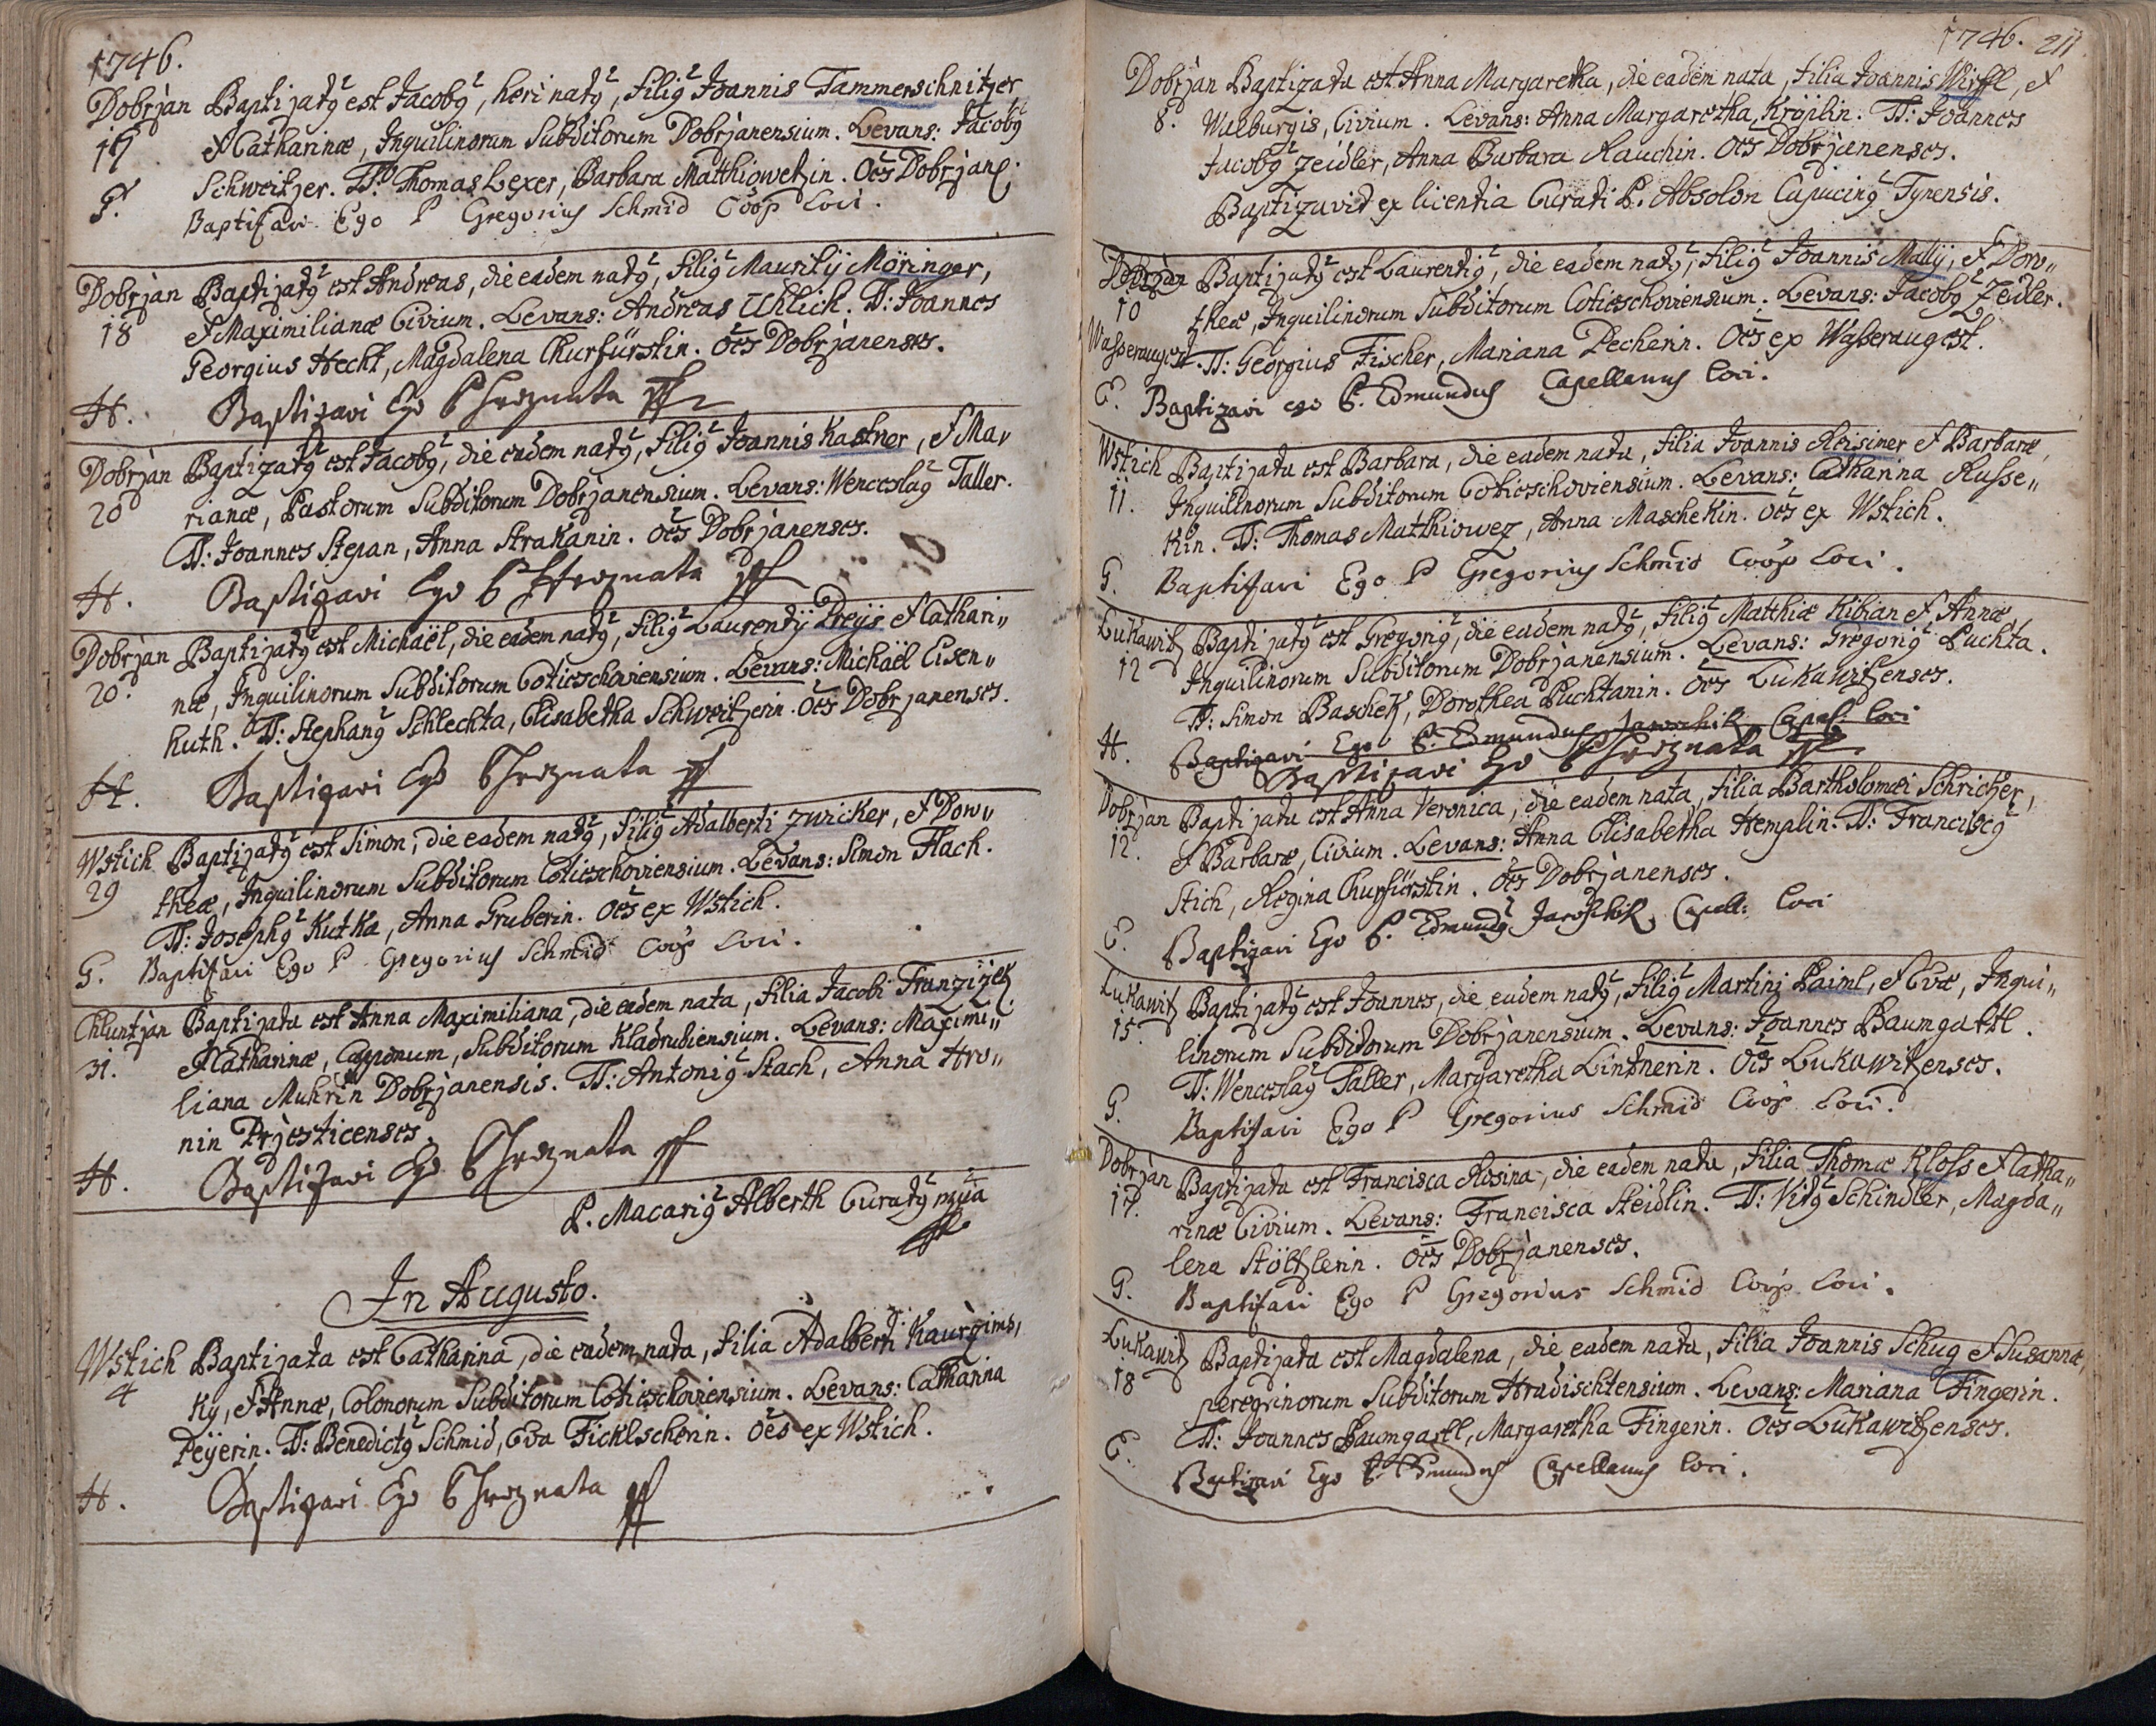 1746.
Dobrzan Baptizatꝰ est Jacobꝰ, heri natꝰ, Filiꝰ Joannis Tammerschnitzer
17 et Catharinæ, Inquilinorum Subditorum Dobrzanensium. Levans: Jacobꝰ
Schweitzer. TT: Thomas Lexer, Barbara Matthiowetzin. Oēs Dobrzanē.
G. Baptisavi Ego P Gregorius Schmid Coop Loci.
Dobrzan Baptizatꝰ est Andreas, die eadem natꝰ, Filiꝰ Mauritij Möringer,
18 et Maximilianæ Civium. Levans: Andreas Uhlich. TT: Joannes
Georgius Hecht, Magdalena Churfürstin. Oēs Dobrzanenses.
H. Baptizavi Ego P Hroznata
Dobrzan Baptizatꝰ est Jacobꝰ, die eadem natꝰ, Filiꝰ Joannis Kastner, et Ma„
20 rianæ, Pastorum Subditorum Dobrzanensium. Levans: Wenceslaꝰ Taller.
TT: Joannes Stepan, Anna Strakanin. Oēs Dobrzanenses.
H. Baptizavi Ego P Hroznata
Dobrzan Baptizatꝰ est Michaël, die eadem natꝰ, Filiꝰ Laurentij Preÿs et Cathari„
20. næ, Inquilinorum Subditorum Cotieschoviensium. Levans: Michaël Eisen„
huth. TT: Stephanꝰ Schlechta, Elisabetha Schweitzerin. Oēs Dobrzanenses.
H. Baptizavi Ego P Hroznata
Wstich Baptizatꝰ est Simon, die eadem natꝰ, Filiꝰ Adalberti Zwicker, et Doro„
29 theæ, Inquilinorum Subditorum Cotieschoviensium. Levans: Simon Flach.
TT: Josephꝰ Kutka, Anna Gruberin. Oēs ex Wstich.
G. Baptisavi Ego P Gregorius Schmid Coop Loci.
Chluntzan Baptizata est Anna Maximiliana, die eadem nata, Filia Jacobi Franzizek
31. et Catharinæ, Cauponum, Subditorum Kladrubiensium. Levans: Maximi„
liana Muhrin Dobrzanensis. TT: Antoniꝰ Stach, Anna Hro„
nin Przesticenses.
H. Baptisavi Ego P Hroznata
P. Macariꝰ Alberth Curatꝰ mp̄ia
In Augusto.
Wstich Baptizata est Catharina, die eadem nata, Filia Adalberti Kaurzims„
4 kÿ, et Annæ, Colonorum Subditorum Cotieschoviensium. Levans: Catharina
Peÿerin. TT: Benedictꝰ Schmid, Eva Ficklscherin. Oēs ex Wstich.
H. Baptizavi Ego P Hroznata
1746. 211
Dobrzan Baptizata est Anna Margaretha, die eadem nata, Filia Joannis Wirffl, et
8. Walburgis, Civium. Levans: Anna Margaretha Kröjlin. TT: Joannes
Jacobꝰ Zeidler, Anna Barbara Rauchin. Oēs Dobrzanenses.
Baptizavit ex licentia Curati P. Absolon Capucinꝰ Tynensis.
Dobrzan Baptizatꝰ est Laurentiꝰ, die eadem natꝰ, Filiꝰ Joannis Mallÿ, et Doro„
10 theæ, Inquilinorum Subditorum Cotieschoviensium. Levans: Jacobꝰ Zeidler.
Wasseraugest. TT: Georgius Fischer, Mariana Pecherin. Oēs ex Wasseraugest.
E. Baptizavi ego P. Edmundus Capellanus loci.
Wstich Baptizata est Barbara, die eadem nata, Filia Joannis Reisiner et Barbaræ,
11. Inquilinorum Subditorum Cotieschoviensium. Levans: Catharina Russe„
kin. TT: Thomas Matthiowez, Anna Maschekin. Oēs ex Wstich.
G. Baptisavi Ego P Gregorius Schmid Coop Loci.
Lukawitz Baptizatꝰ est Gregoriꝰ, die eadem natꝰ, Filiꝰ Matthiæ Kibian et Annæ
12 Inquilinorum Subditorum Dobrzanensium. Levans: Gregoriꝰ Puchta.
TT: Simon Baschek, Dorothea Puchtanin. Oēs Lukawitzenses.
H. Baptizavi Ego P. Edmundus Jaroschik Capel. loci
Baptizavi Ego P Hroznata
Dobrzan Baptizata est Anna Veronica, die eadem nata, Filia Bartholomæi Schritzer,
12. et Barbaræ, Civium. Levans: Anna Elisabetha Hemplin. TT: Franciscꝰ
Stich, Regina Churfürstin. Oēs Dobrzanenses.
E. Baptizavi Ego P. Edmundꝰ Jaroschik Capell: loci
Lukawitz Baptizatꝰ est Joannes, die eadem natꝰ, Filiꝰ Martini Paiml, et Evæ, Inqui„
15. linorum Subditorum Dobrzanensium. Levans: Joannes Baumgartl.
TT: Wenceslaꝰ Taller, Margaretha Lintnerin. Oēs Lukawitzenses.
G. Baptisavi Ego P Gregorius Schmid Coop Loci.
Dobrzan Baptizata est Francisca Rosina, die eadem nata, Filia Thomæ Kloss et Catha„
17. rinæ Civium. Levans: Francisca Steidlin. TT: Vitꝰ Schindler, Magda„
lena Stöltzlerin. Oēs Dobrzanenses.
G. Baptisavi Ego P Gregorius Schmid Coop Loci.
Lukawitz Baptizata est Magdalena, die eadem nata, Filia Joannis Schug et Susannæ,
18 peregrinorum Subditorum Hradischtensium. Levans: Mariana Fingerin.
TT: Joannes Baumgartl, Margaretha Fingerin. Oēs Lukawitzenses.
E. Baptizavi Ego P. Edmundus Capellanus loci.